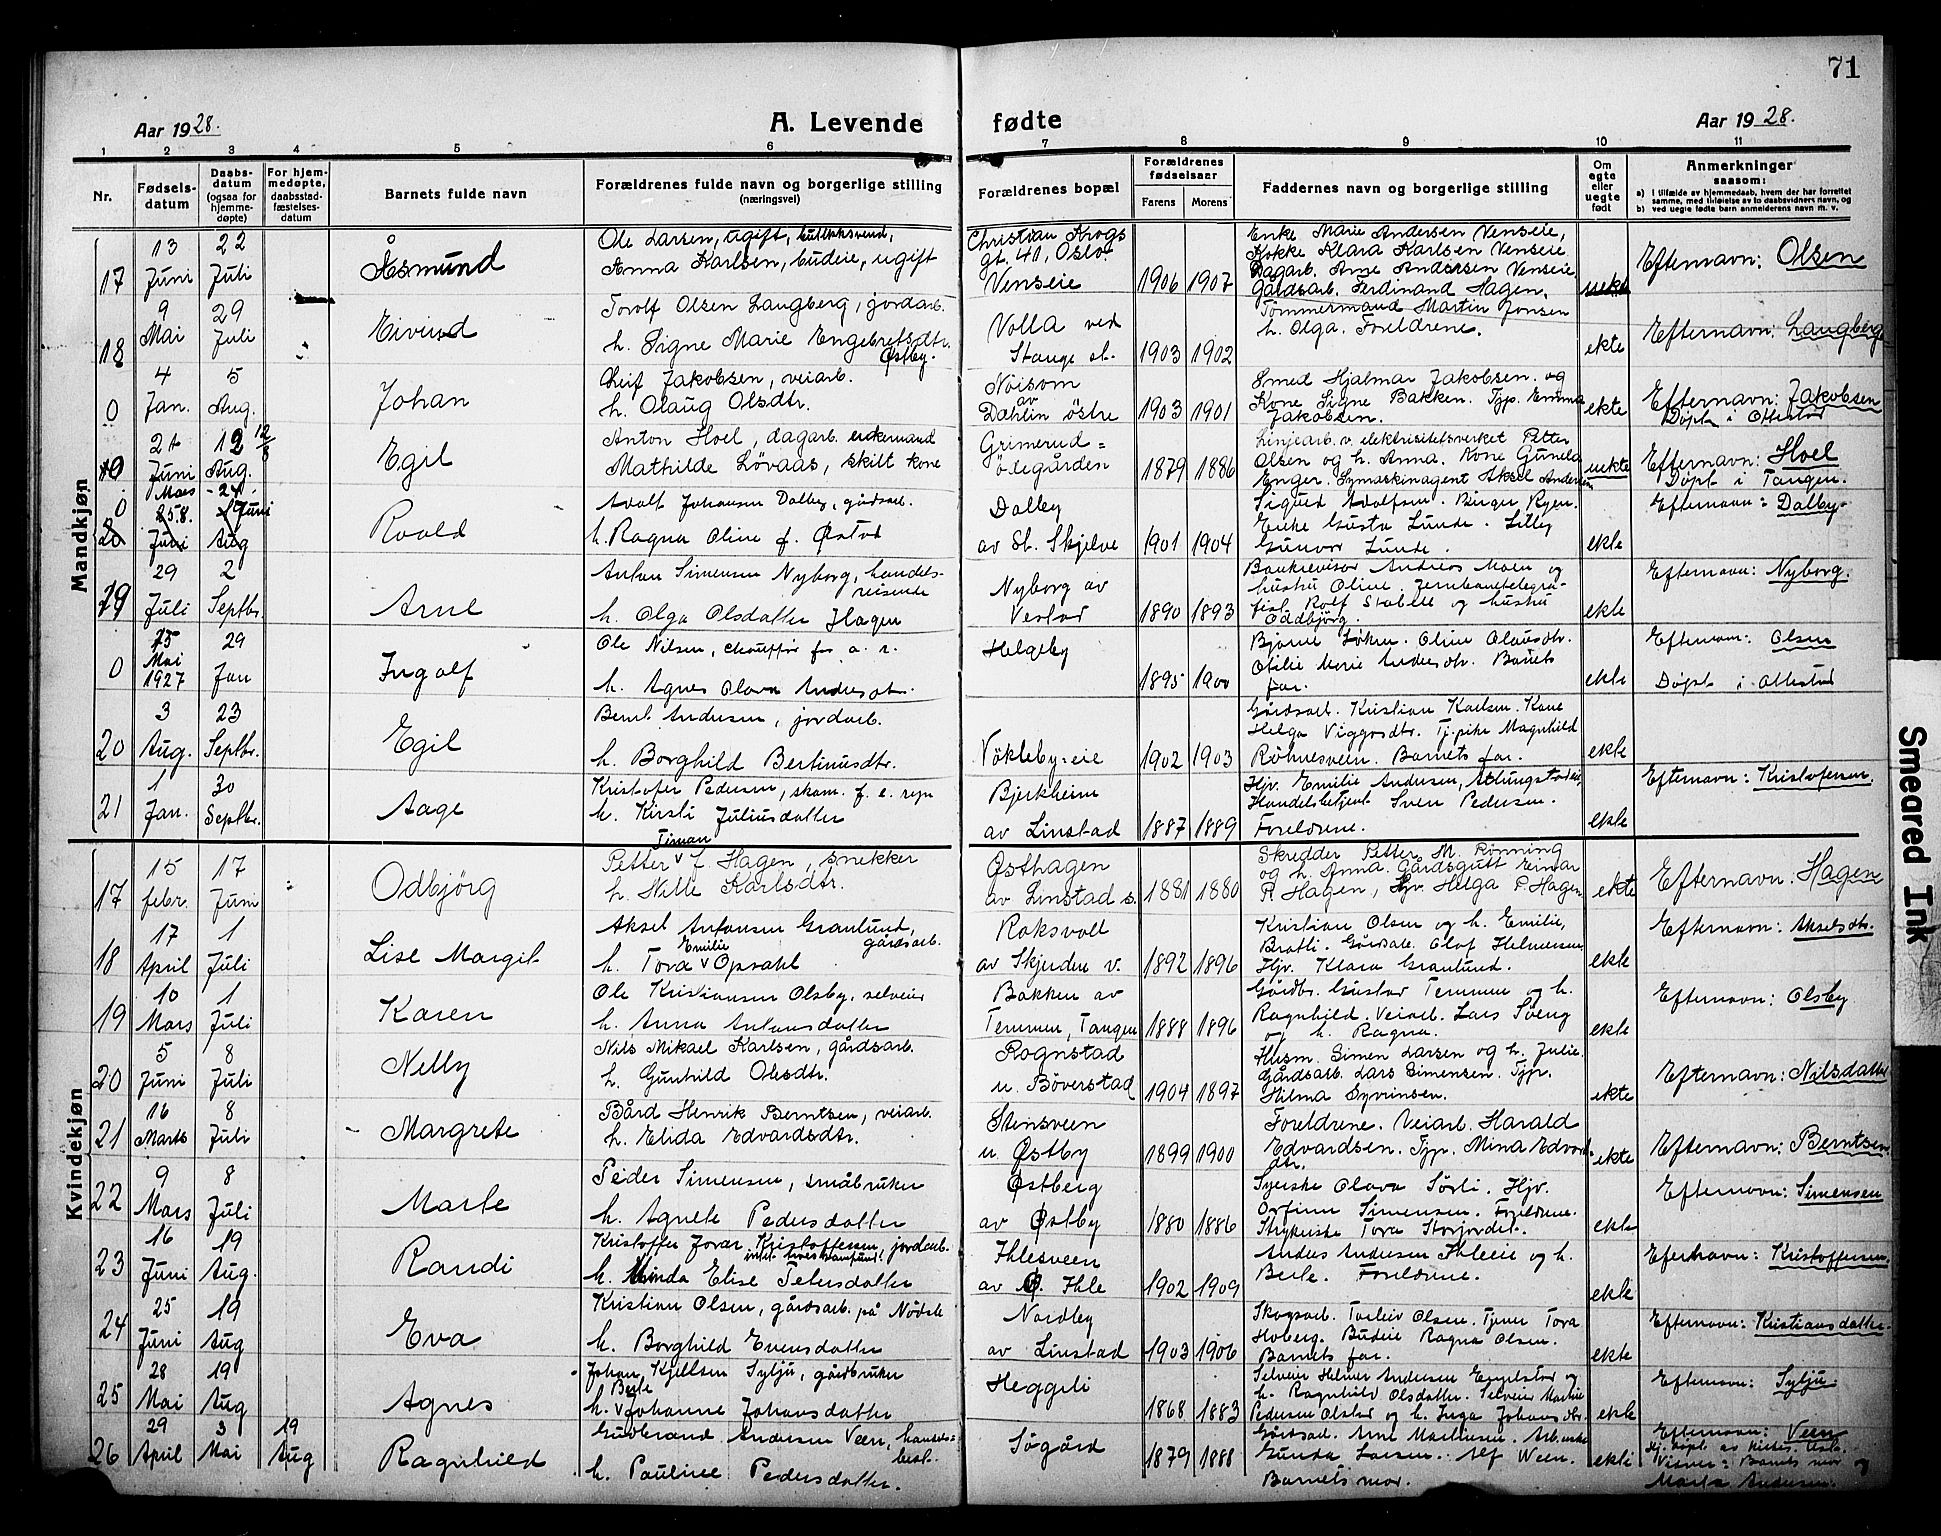 71
Aar 1928.
A. Levende fødte
Aar 1928.
1 2 3 4 5 6 7 8 9 10 11
Nr.
Fødsels-
datum
Daabs-
datum
(ogsaa for
hjemme-
døpte)
For hjem-
medøpte,
daabsstad-
fæstelses-
datum
Barnets fulde navn
Forældrenes fulde navn og borgerlige stilling
(næringsvei)
Forældrenes bopæl
Forældrenes
fødselsaar
Farens Morens
Faddernes navn og borgerlige stilling
Om
egte
eller
uegte
født
Anmerkninger
saasom:
a) I tilfælde av hjemmedaab, hvem der har forrettet
samme, med tilføielse av to daabsvidners navn, og
b) ved uegte fødte barn anmelderens navn m. v.
Mandkjøn
17 13 Juni 22 Juli Åsmund
Ole Larsen, ugift,
Anna Karlsen, budeie, ugift
Christian Krogs
gt. 41, Oslo
Venseie
1906 1907
Enke Marie Andersen Venseie,
Kokke Klara Karlsen Venseie
Dagarb. Arne Andersen Venseie
Gårdsarb. Ferdinand Hagen.
uekte
Efternavn: Olsen
18 9 Mai 29 Juli Eivind
Torolf Olsen Langberg, jordarb.
h. Signe Marie Engebretsdtr.
Østby.
Volla ved
Stange st.
1903 1902
Tømmermand Martin Jonsen
h. Olga. Foreldrene.
ekte
Efternavn: Langberg
0 4 Jan. 5 Aug. Johan
Leif Jakobsen, veiarb.
h. Olaug Olsdtr.
Noisom
av
Dæhlin østre
1903 1901
Smed Hjalmar Jakobsen og
Kone Signe Bakken. Tjp. Emma
Jakobsen.
ekte
Efternavn: Jakobsen
Døpt i Ottestad
0 21 Juni 12 Aug. 12/8 Egil
Anton Hoel, dagarb. enkemand
Mathilde Løvaas, skilt kone
Grimerud=
ødegården
1879 1886
Linjearb. v. elektrisitetsverket Petter
Olsen og h. Anna. Kone Gunela
Enger. Symaskinagent Aksel Andersen
uekte
Efternavn: Hoel
Døpt i Tangen.
0 Mars 24 Juni Roald
20 Juni Aug
Adolf Johansen Dalby, gårdsarb.
h. Ragna Oline f. Østad
Dalby
av St. Skjelve
1901 1904
Sigurd Adolfsen. Birger Ryen.
Enke Gusta Lunde. Lilly
Gunvor Lunde.
ekte
Efternavn: Dalby.
19 29 Juli 2 Septbr. Arne
Anton Simensen Nyborg, handels-
reisende
h. Olga Olsdatter Hagen
Nyborg av
Vestad
1890 1893
Bankrevisor Andreas Moen og
hustru Oline. Jernbanetelegra-
fist Rolf Stabell og hustru
Oddbjørg.
ekte
Efternavn: Nyborg.
0 15 Mai 1927 29 Jan Ingolf
Ole Nilsen, chauffør f. a. r.
h. Agnes Olava Andreasdtr.
Helgeby
1895 1900
Bjarne Løken. Oline Olausdtr.
Otilie Marie Andersdtr. Barnets
far.
ekte
Efternavn: Olsen
Døpt i Ottestad
20 3 Aug. 23 Septbr. Egil
Bernt Andersen, jordarb.
h. Borghild Bertinusdtr.
Nökleby=eie
1902 1903
Gårdsarb. Kristian Karlsen. Kone
Helga Viggosdtr. Tj.pike Magnhild
Røhnesveen. Barnets far.
ekte
21 1 Jan. 30 Septbr. Aage
Kristofer Pedersen, skom. f. e. regn
h. Kirsti Juliusdatter
Bjerkheim
av Linstad
1887 1889
Hjv. Emilie Andersen,
Handelsbetjent Sven Pedersen.
Foreldrene.
ekte
Efternavn: Kristofersen
Kvindekjøn
17 15 febr. 17 Juni Odbjörg
Timan
Petter J. Hagen, snekker
h. Nille Karlsdtr.
Østhagen
av Linstad s.
1881 1880
Skredder Petter M. Rønning
og h. Anna. Gårdsgutt Einar
P. Hagen, Hjv. Helga P. Hagen
ekte
Efternavn: Hagen
18 17 April 1 Juli Lise Margit
Aksel Antonsen Granlund,
gårdsarb.
Emilie
h. Tora Opsahl
Roksvolt
av Skjerden v.
1892 1896
Kristian Olsen og h. Emilie,
Bratli. Gårdsarb. Olof Helmersen
Hjv. Klara Granlund.
ekte
Efternavn: Akselsdtr.
19 10 Mars 1 Juli Karen
Ole Kristiansen Olsby, selveier
h. Anna Antonsdatter
Bakken av
Temmen, Tangen
1888 1896
Gårdbr. Gustav Temmen og h.
Ragnhild. Veiarb. Lars Sveng
og h. Ragna.
ekte
Efternavn: Olsby
20 5 Juni 8 Juli Nelly
Nils Mikael Karlsen, gårdsarb.
h. Gunhild Olesdtr.
Rognstad
u. Bøverstad
1904 1897
Husm. Simen Larsen og h. Julie.
Gårdsarb. Lars Simensen. Tjp.
Hilma Syvrinsen.
ekte
Efternavn: Nilsdatter
21 16 Marts 8 Juli Margrete
Bård Henrik Berntsen, veiarb.
h. Elida Edvardsdtr.
Stensveen
u. Østby
1899 1900
Foreldrene. Veiarb. Harald
Edvardsen. Tjp. Mina Edvards-
dtr.
ekte
Efternavn: Berntsen
22 9 Mars 8 Juli Marte
Peder Simensen, småbruker
h. Agnete Pedersdatter
Østberg
av Østby
1880 1886
Syerske Olava Sørli. Hjv.
Orfinn Simensen. Foreldrene.
Strykerske Tora Storjordet.
ekte
Efternavn: Simensen
23 16 Juni 19 Aug. Randi
Kristoffer Jovar Kristoffersen, jordarb.
h. Minda Elise Petersdatter
Ihlesveen
av Ø. Ihle
1902 1909
Anders Andersen Ihleeie og h.
Berte. Foreldrene.
ekte
Efternavn: Kristoffersen
24 25 Juni 19 Aug Eva
Kristian Olsen, gårdsarb. på Nødsle
h. Borghild Evensdatter
Nordby
av Linstad
1903 1906
Skogsarb. Torleiv Olsen. Tjener Tora
Hoberg. Budeie Ragna Olsen.
Barnets far.
ekte
Efternavn: Kristiansdatter.
25 28 Mai 19 Aug Agnes
Johan Kjellsen Sylju, gårdbruker
Berte
h. Johanne Johansdatter
Heggeli
1868 1883
Selveier Helmer Andersen Engelstad og
h. Ragnhild Olsdatter. Selveier Martin
Pedersen Olstad og h. Inga Johansdtr.
ekte
Efternavn: Sylju.
26 29 April 3 Mai 19 Aug Ragnhild
Gudbrand Andersen Veen, handels=
best.
h. Pauline Pedersdatter.
Søgård
1879 1888
Gårdsarb. Arne Martinsen.
Gunda Larsen. Alf Ween.
Barnets mor.
ekte
Efternavn: Veen
Hj. døpt av
Vidner: Barnets mor og
Marta Andersen.
Smeared Ink